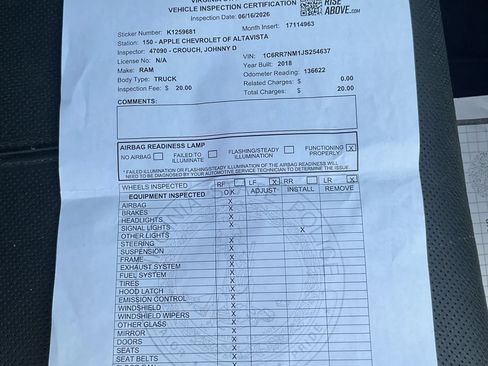 VEHICLE INSPECTION CERTIFICATION
Inspection Date: 06/16/2026
RISE
ABOVE.COM
Sticker Number: K1259681
Month Insert: 17114963
Station: 150 - APPLE CHEVROLET OF ALTAVISTA
Inspector: 47090 - CROUCH, JOHNNY D
License No: N/A
VIN: 1C6RR7NM1JS254637
Make: RAM
Year Built: 2018
Body Type: TRUCK
Odometer Reading: 136622
Inspection Fee: $ 20.00
Related Charges: $ 0.00
Total Charges: $ 20.00
COMMENTS:
AIRBAG READINESS LAMP
NO AIRBAG
FAILED TO ILLUMINATE
FLASHING/STEADY ILLUMINATION
FUNCTIONING PROPERLY X
* FAILED ILLUMINATION OR FLASHING/STEADY ILLUMINATION OF THE AIRBAG READINESS WILL
NEED TO BE DIAGNOSED BY YOUR AUTOMOTIVE SERVICE TECHNICIAN TO DETERMINE THE ISSUE.
WHEELS INSPECTED RF LF X RR LR X
EQUIPMENT INSPECTED O.K. ADJUST INSTALL REMOVE
AIRBAG X
BRAKES X
HEADLIGHTS X
SIGNAL LIGHTS X
OTHER LIGHTS X
STEERING X
SUSPENSION X
FRAME X
EXHAUST SYSTEM X
FUEL SYSTEM X
TIRES X
HOOD LATCH X
EMISSION CONTROL X
WINDSHIELD X
WINDSHIELD WIPERS X
OTHER GLASS X
MIRROR X
DOORS X
SEATS X
SEAT BELTS X